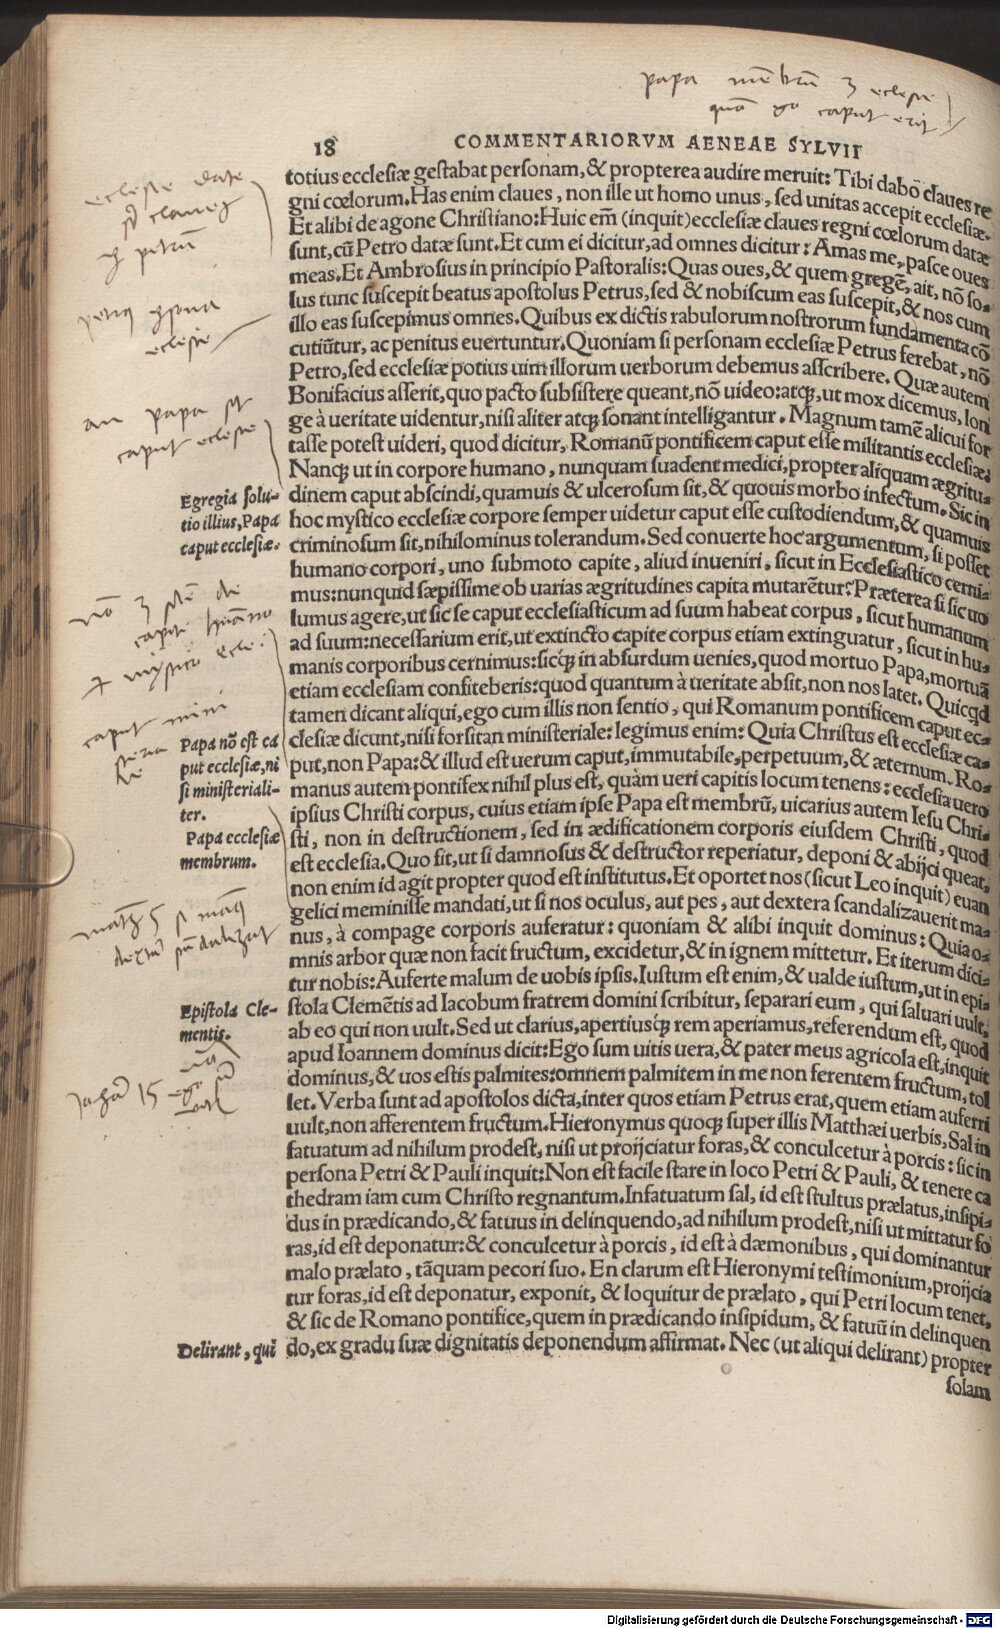 papa membrū ecclesie
quō go caput erit
18 COMMENTARIORVM AENEAE SYLVII
totius ecclesiæ gestabat personam, & propterea audire meruit: Tibi dabo claues re
gni cœlorum. Has enim claues, non ille ut homo unus, sed unitas accepit ecclesiæ.
Et alibi de agone Christiano: Huic em̄ (inquit) ecclesiæ claues regni cœlorum datæ
sunt, cū Petro datæ sunt. Et cum ei dicitur, ad omnes dicitur: Amas me, pasce oues
meas. Et Ambrosius in principio Pastoralis: Quas oues, & quem gregē, ait, nō so-
lus tunc suscepit beatus apostolus Petrus, sed & nobiscum eas suscepit, & nos cum
illo eas suscepimus omnes. Quibus ex dictis rabulorum nostrorum fundamenta cō
cutiūtur, ac penitus euertuntur. Quoniam si personam ecclesiæ Petrus ferebat, nō
Petro, sed ecclesiæ potius uim illorum uerborum debemus asscribere. Quæ autem
Bonifacius asserit, quo pacto subsistere queant, nō uideo: atq;, ut mox dicemus, lon
ge à ueritate uidentur, nisi aliter atq; sonant intelligantur. Magnum tamē alicui for
tasse potest uideri, quod dicitur, Romanū pontificem caput esse militantis ecclesiæ.
Nanq; ut in corpore humano, nunquam suadent medici, propter aliquam ægritu-
dinem caput abscindi, quamuis & ulcerosum sit, & quouis morbo infectum. Sic in
hoc mystico ecclesiæ corpore semper uidetur caput esse custodiendum, & quamuis
criminosum sit, nihilominus tolerandum. Sed conuerte hoc argumentum, si posset
humano corpori, uno submoto capite, aliud inueniri, sicut in Ecclesiastico cerni-
mus: nunquid sæpissime ob uarias ægritudines capita mutarētur? Præterea si sic uo
lumus agere, ut sic se caput ecclesiasticum ad suum habeat corpus, sicut humanum
ad suum: necessarium erit, ut extincto capite corpus etiam extinguatur, sicut in hu-
manis corporibus cernimus: sicq; in absurdum uenies, quod mortuo Papa, mortuā
etiam ecclesiam confiteberis: quod quantum à ueritate absit, non nos latet. Quicqd
tamen dicant aliqui, ego cum illis non sentio, qui Romanum pontificem caput ec-
clesiæ dicunt, nisi forsitan ministeriale: legimus enim: Quia Christus est ecclesiæ ca-
put, non Papa: & illud est uerum caput, immutabile, perpetuum, & æternum. Ro-
manus autem pontifex nihil plus est, quàm ueri capitis locum tenens: ecclesia uero
ipsius Christi corpus, cuius etiam ipse Papa est membrū, uicarius autem Iesu Chri-
sti, non in destructionem, sed in ædificationem corporis eiusdem Christi, quod
est ecclesia. Quo fit, ut si damnosus & destructor reperiatur, deponi & abijci queat,
non enim id agit propter quod est institutus. Et oportet nos (sicut Leo inquit) euan
gelici meminisse mandati, ut si nos oculus, aut pes, aut dextera scandalizauerit ma-
nus, à compage corporis auferatur: quoniam & alibi inquit dominus: Quia o-
mnis arbor quæ non facit fructum, excidetur, & in ignem mittetur. Et iterum dici-
tur nobis: Auferte malum de uobis ipsis. Iustum est enim, & ualde iustum, ut in epi-
stola Clemētis ad Iacobum fratrem domini scribitur, separari eum, qui saluari uult,
ab eo qui non uult. Sed ut clarius, apertiusq; rem aperiamus, referendum est, quod
apud Ioannem dominus dicit: Ego sum uitis uera, & pater meus agricola est, inquit
dominus, & uos estis palmites: omnem palmitem in me non ferentem fructum, tol
let. Verba sunt ad apostolos dicta, inter quos etiam Petrus erat, quem etiam auferri
uult, non afferentem fructum. Hieronymus quoq; super illis Matthæi uerbis, Sal in
fatuatum ad nihilum prodest, nisi ut proijciatur foras, & conculcetur à porcis: sic in
persona Petri & Pauli inquit: Non est facile stare in loco Petri & Pauli, & tenere ca
thedram iam cum Christo regnantum. Infatuatum sal, id est stultus prælatus, insipi-
dus in prædicando, & fatuus in delinquendo, ad nihilum prodest, nisi ut mittatur fo
ras, id est deponatur: & conculcetur à porcis, id est à dæmonibus, qui dominantur
malo prælato, tāquam pecori suo. En clarum est Hieronymi testimonium, proijcia
tur foras, id est deponatur, exponit, & loquitur de prælato, qui Petri locum tenet,
& sic de Romano pontifice, quem in prædicando insipidum, & fatuū in delinquen
do, ex gradu suæ dignitatis deponendum affirmat. Nec (ut aliqui delirant) propter
solam
ecclesie date
claues
petrū
ecclesie
an papa sit
caput ecclesie
Egregia solu-
tio illius, Papa
caput ecclesiæ.
capite humano
mystico eccle:
caput mini
Papa nō est ca
put ecclesiæ, ni
si ministeriali-
ter.
Papa ecclesiæ
membrum.
math 5 si manꝰ
Epistola Cle-
mentis.
Johā 15 ego sū
Delirant, qui
Digitalisierung gefördert durch die Deutsche Forschungsgemeinschaft - DFG